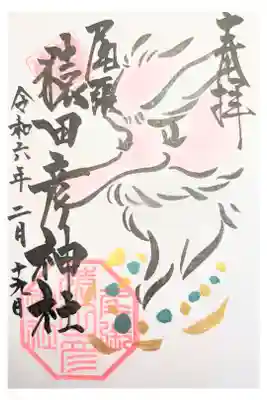 奉拝
尾頭
猿田彦神社
令和六年 二月 十九日